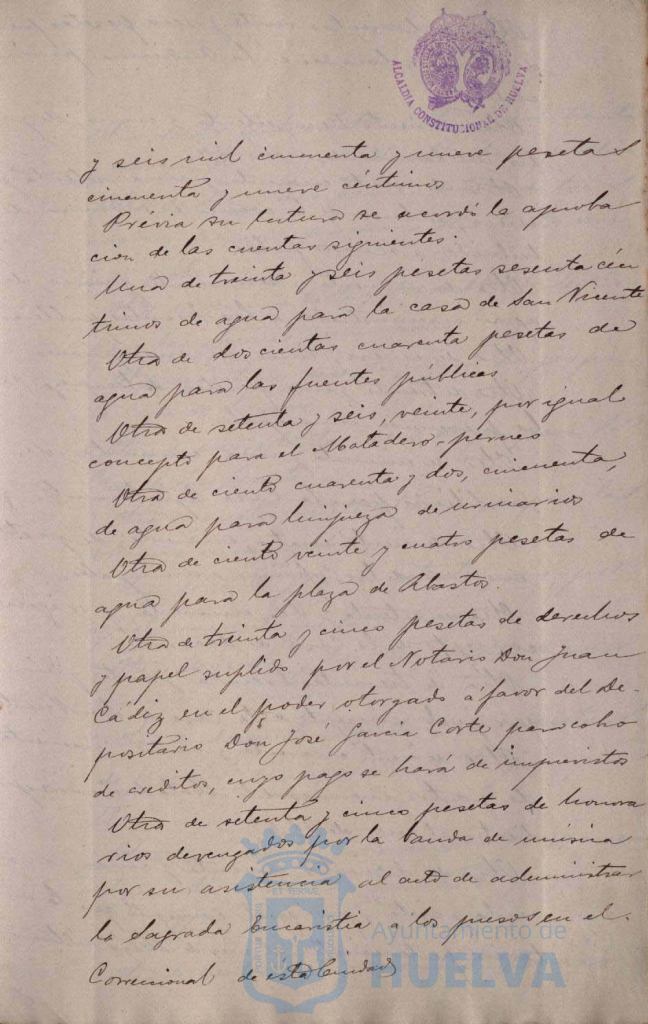 ALCALDIA CONSTITUCIONAL DE HUELVA
y seis mil cincuenta y nueve pesetas
cincuenta y nueve céntimos
Prévia su lectura se acordó la aproba
cion de las cuentas siguientes:
Una de treinta y seis pesetas sesenta cén
timos de agua para la casa de San Vicente
Otra de doscientas cuarenta pesetas de
agua para las fuentes públicas
Otra de setenta y seis, veinte, por igual
concepto para el Matadero-
Otra de ciento cuarenta y dos, cincuenta,
de agua para limpieza de urinarios
Otra de ciento veinte y cuatro pesetas de
agua para la plaza de Abastos.
Otra de treinta y cinco pesetas de derechos
y papel suplido por el Notario Don Juan
Cádiz en el poder otorgado á favor del De-
positario Don José García Corte para cobro
de creditos, cuyo pago se hará de imprevistos
Otra de setenta y cinco pesetas de honora
rios devengados por la banda de música
por su asistencia al acto de administrar
la Sagrada Eucaristia á los presos en el
Correccional de esta Ciudad
Ayuntamiento de
HUELVA